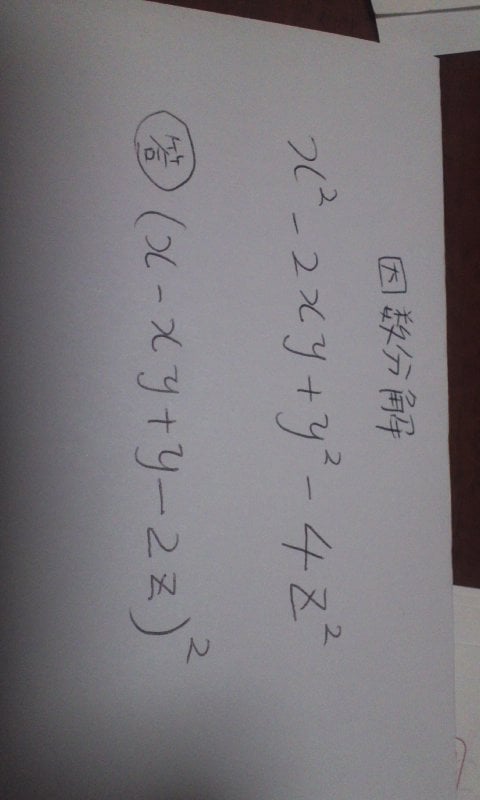 因数分解
x² - 2xy + y² - 4z²
答 (x - xy + y - 2z)²